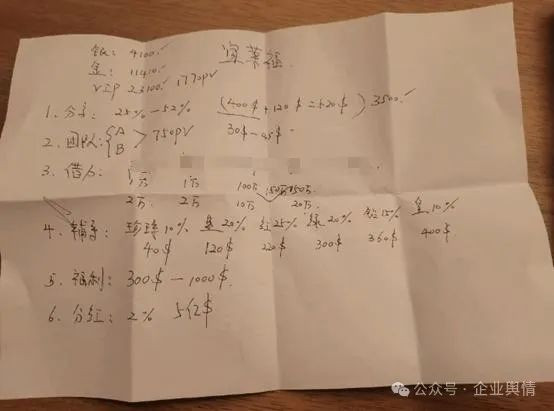 银: 4100.-
金: 11410.-
VIP 23100.- 1770PV
宜莱福
1. 分享: 25% - 52% (400$ + 120$ = 520$) 3500.-
2. 团队: {A B > 750PV 30$ - 95$
3. 借力:
1万 1万 100万 150万 150万
2万 2万 10万 20万
4. 辅导: 珍珠10% 蓝20% 红25% 绿20% 钻15% 皇10%
40$ 120$ 220$ 300$ 360$ 400$
5. 福利: 300$ - 1000$
6. 分红: 2% 5亿$
公众号 · 企业舆情